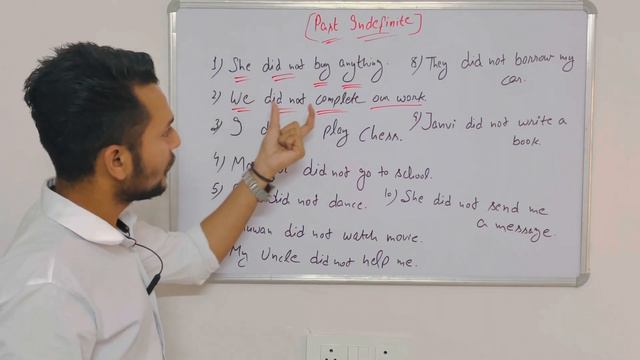 [Past Indefinite]
1) She did not buy anything.
2) We did not complete our work.
3) I play Chess.
4) did not go to school.
5) did not dance.
did not watch movie.
My Uncle did not help me.
8) They did not borrow my
car.
9) Janvi did not write a
book.
10) She did not send me
a message.